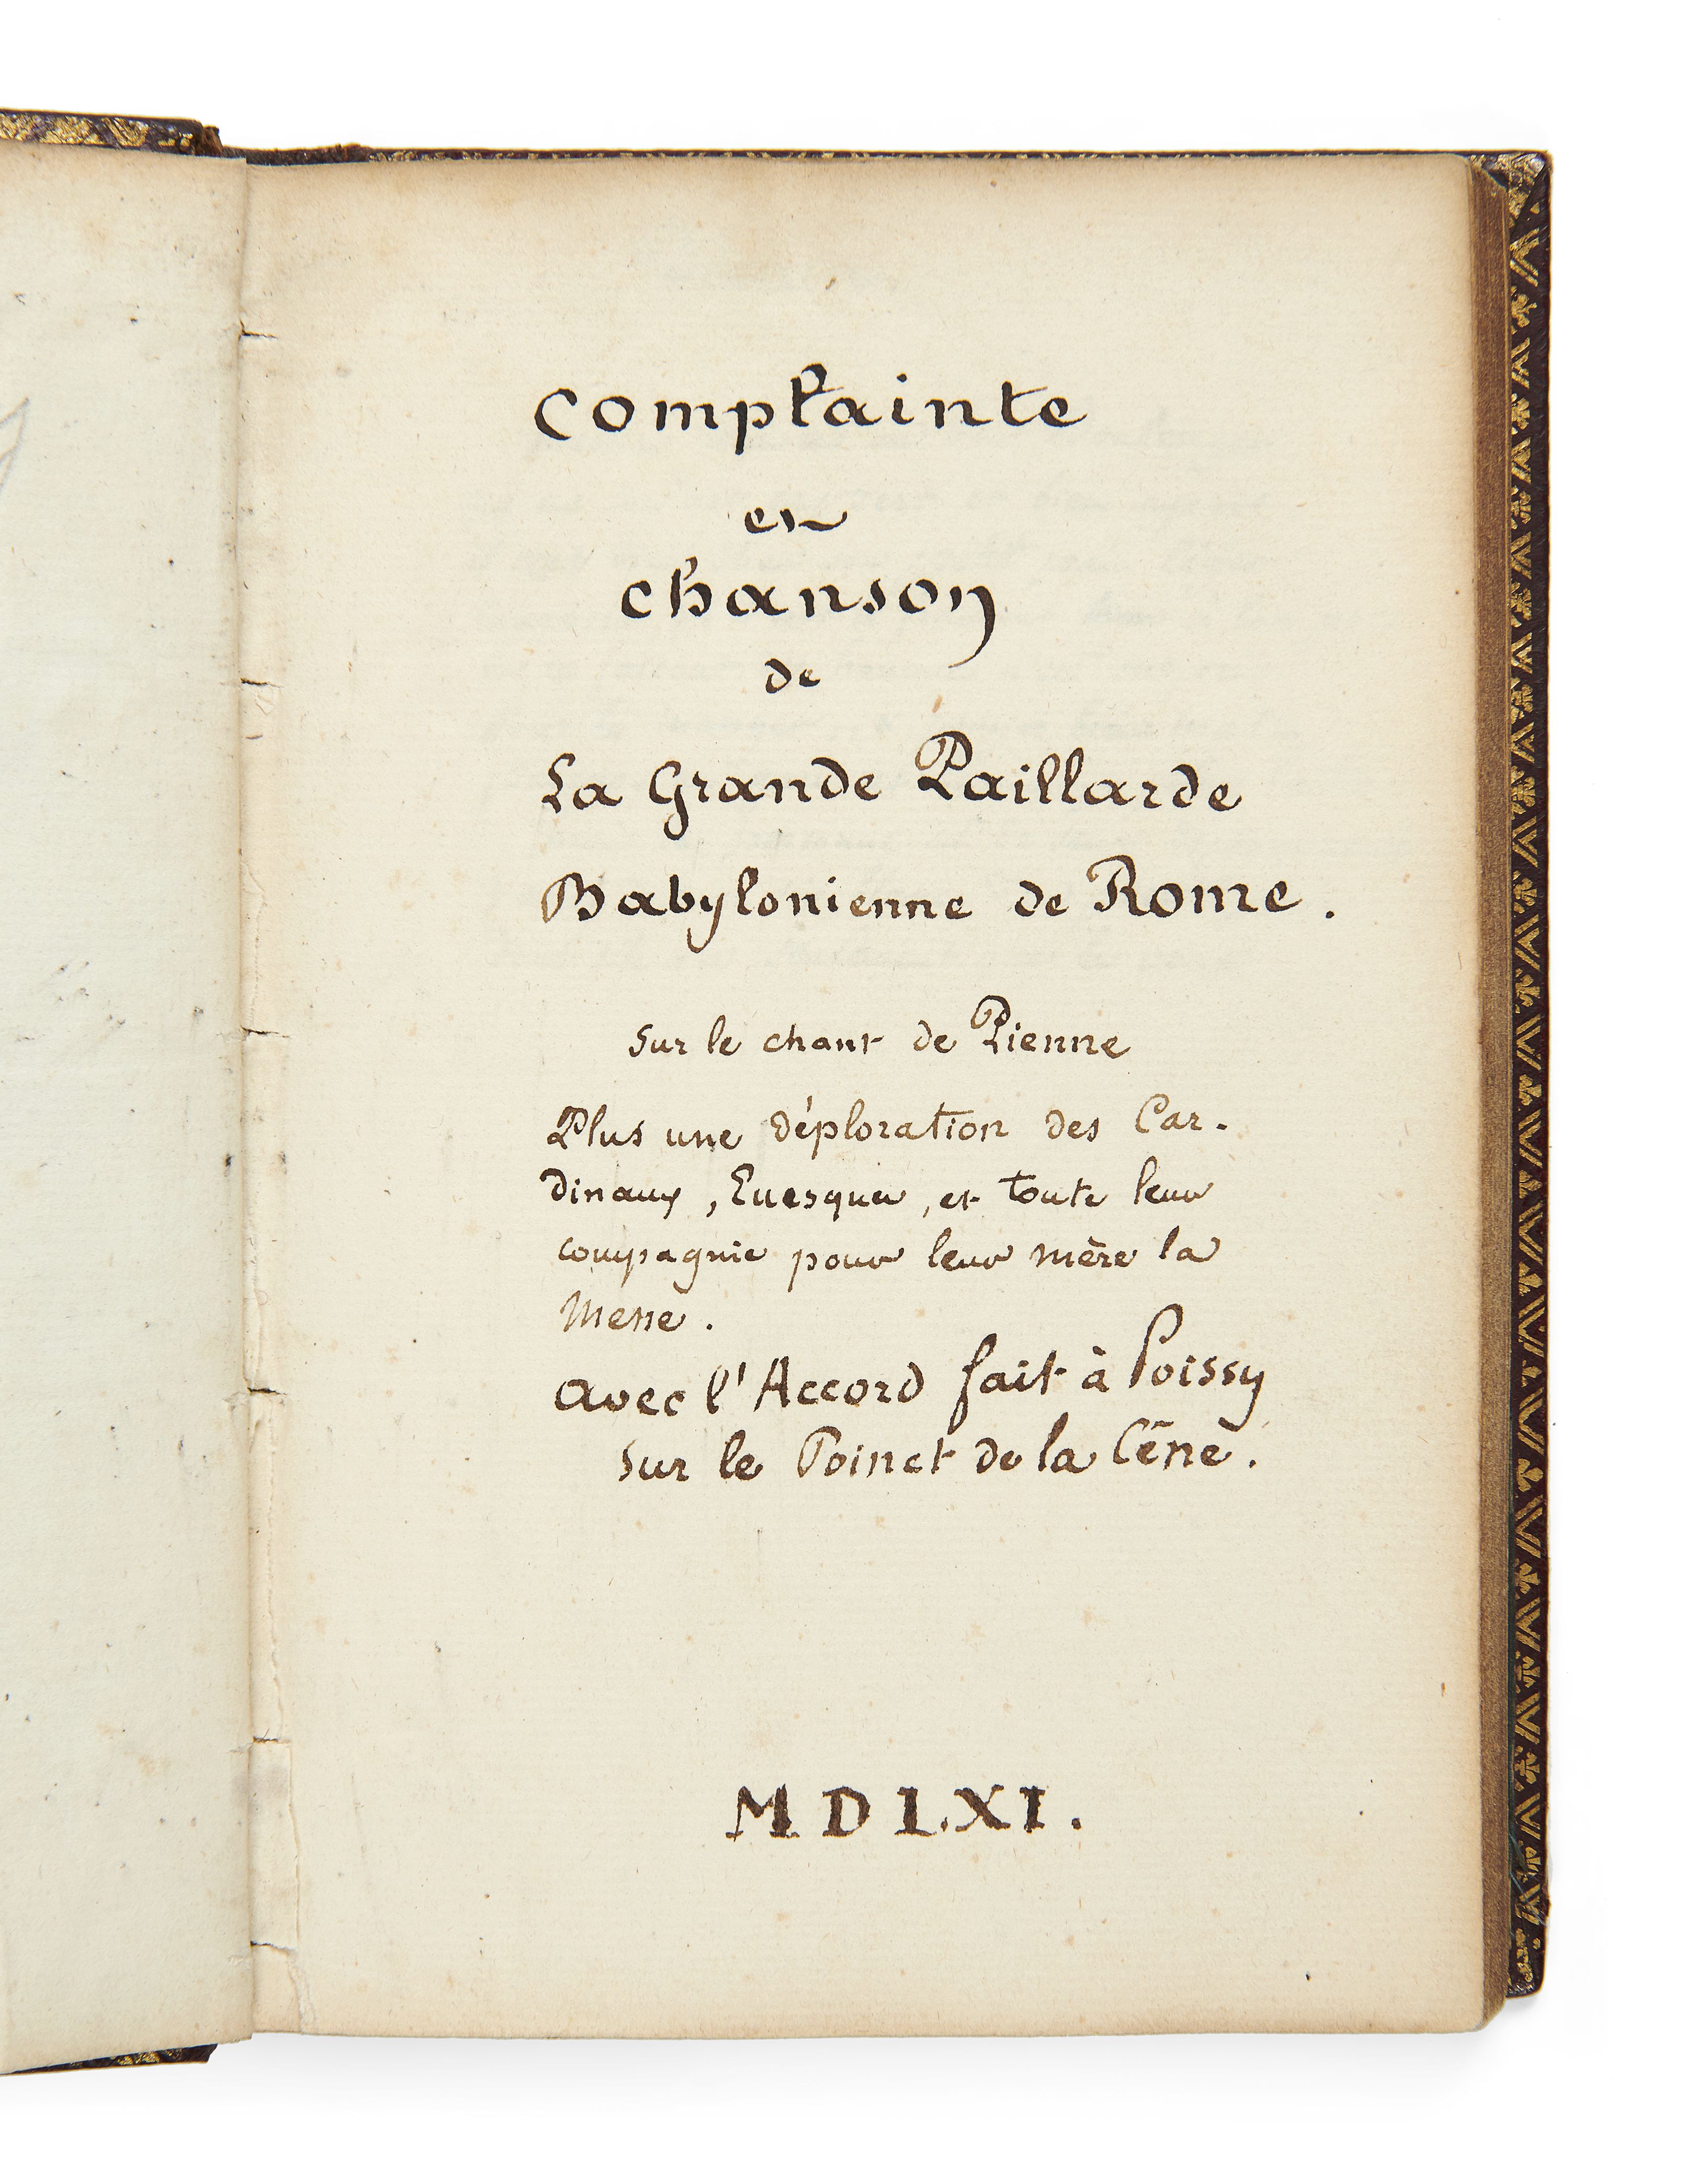 Complainte
en
chanson
de
La Grande Paillarde
Babylonienne de Rome.
sur le chant de Pienne
Plus une déploration des Car-
dinaux, Euesques, et toute leur
compagnie pour leur mère la
Messe.
avec l'Accord fait à Poissy
sur le Poinct de la Cène.
MDLXI.